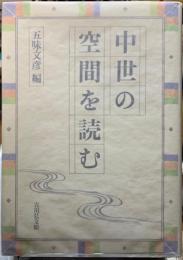 中世の
空間を読む
五味文彦 編
吉川弘文館